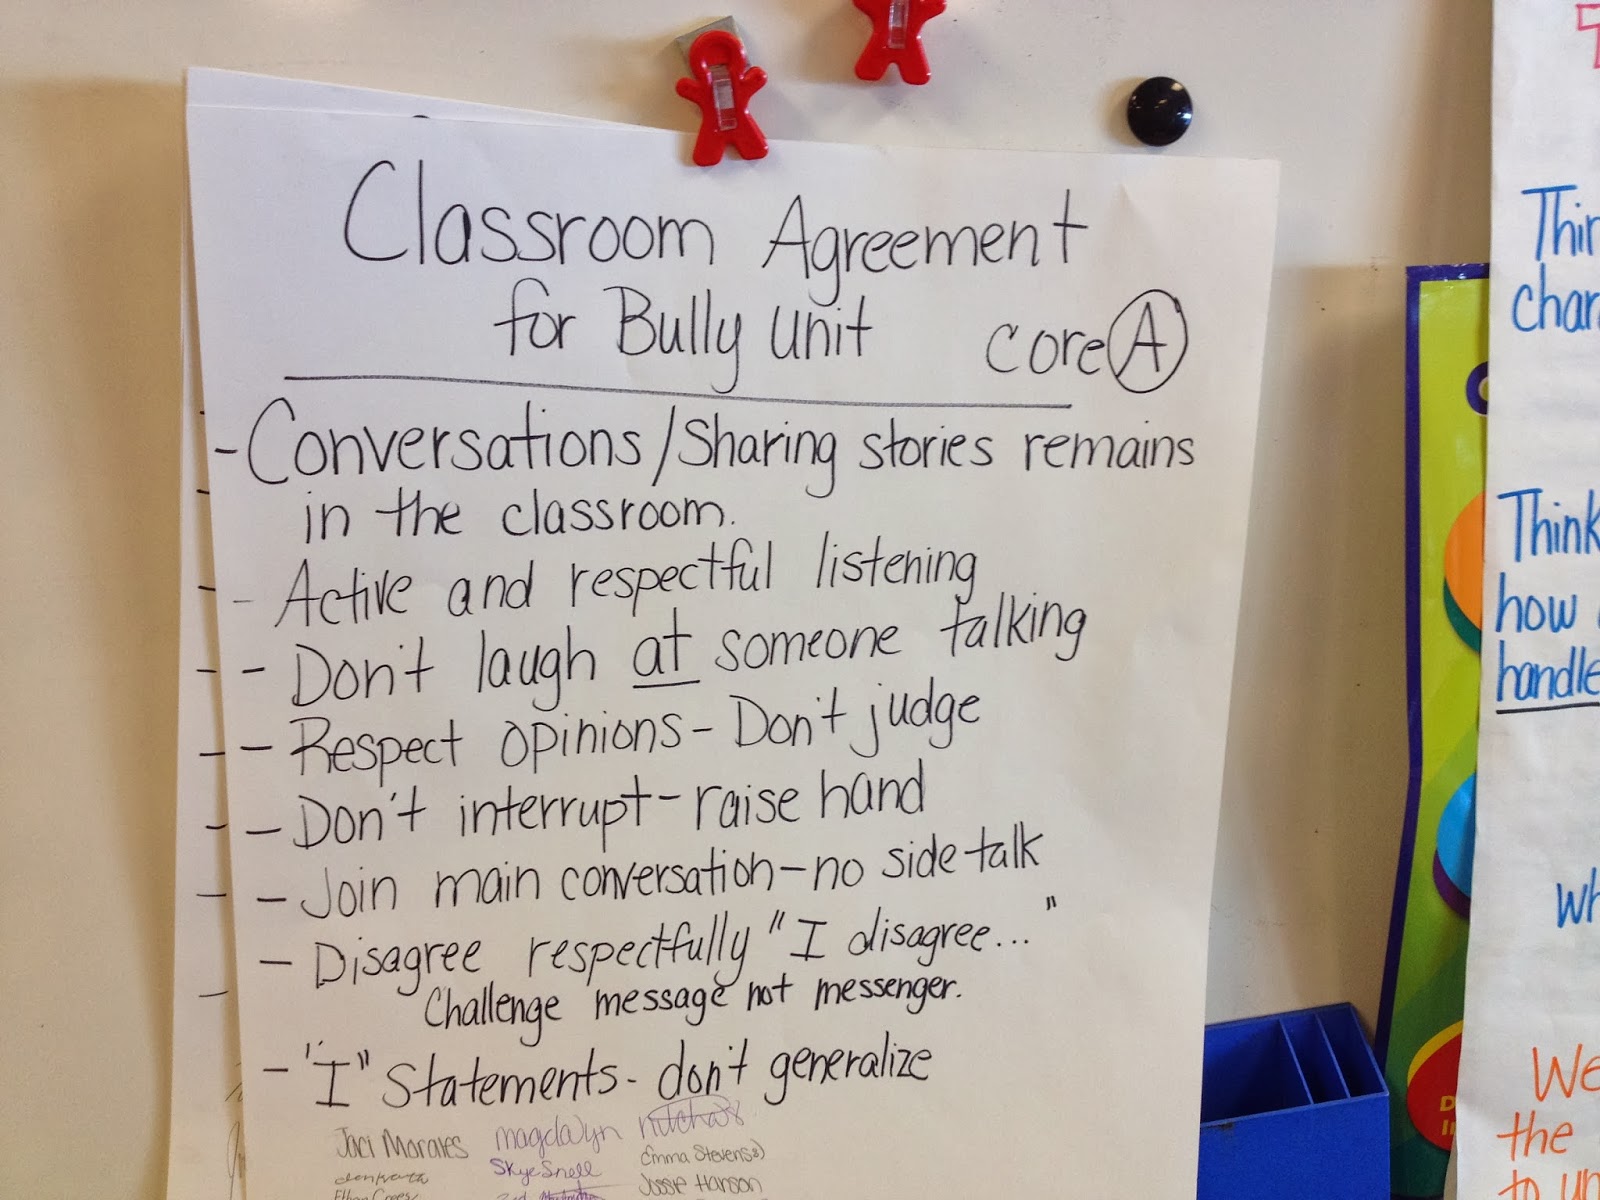 Classroom Agreement
for Bully Unit core A
- Conversations/Sharing stories remains
in the classroom.
- Active and respectful listening
- Don't laugh at someone talking
- Respect opinions - Don't judge
- Don't interrupt - raise hand
- Join main conversation - no side talk
- Disagree respectfully "I disagree..."
Challenge message not messenger.
- "I" Statements - don't generalize
Jaci Morales
magdalyn
Emma Stevens
Skye Snell
Jossie Hanson
Thin
char
Think
how
handle
Wh
We
the
to un